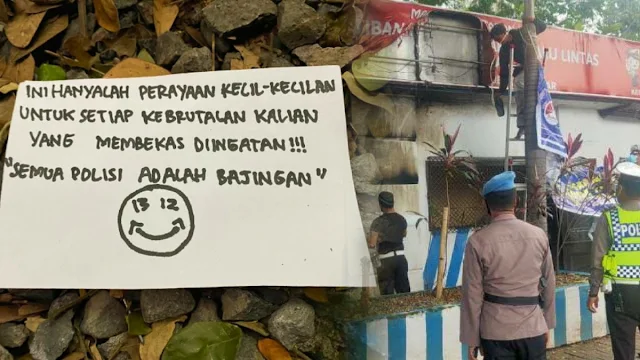 INI HANYALAH PERAYAAN KECIL-KECILAN
UNTUK SETIAP KEBRUTALAN KALIAN
YANG MEMBEKAS DIINGATAN!!!
"SEMUA POLISI ADALAH BAJINGAN"
13 12
LINTAS
POL